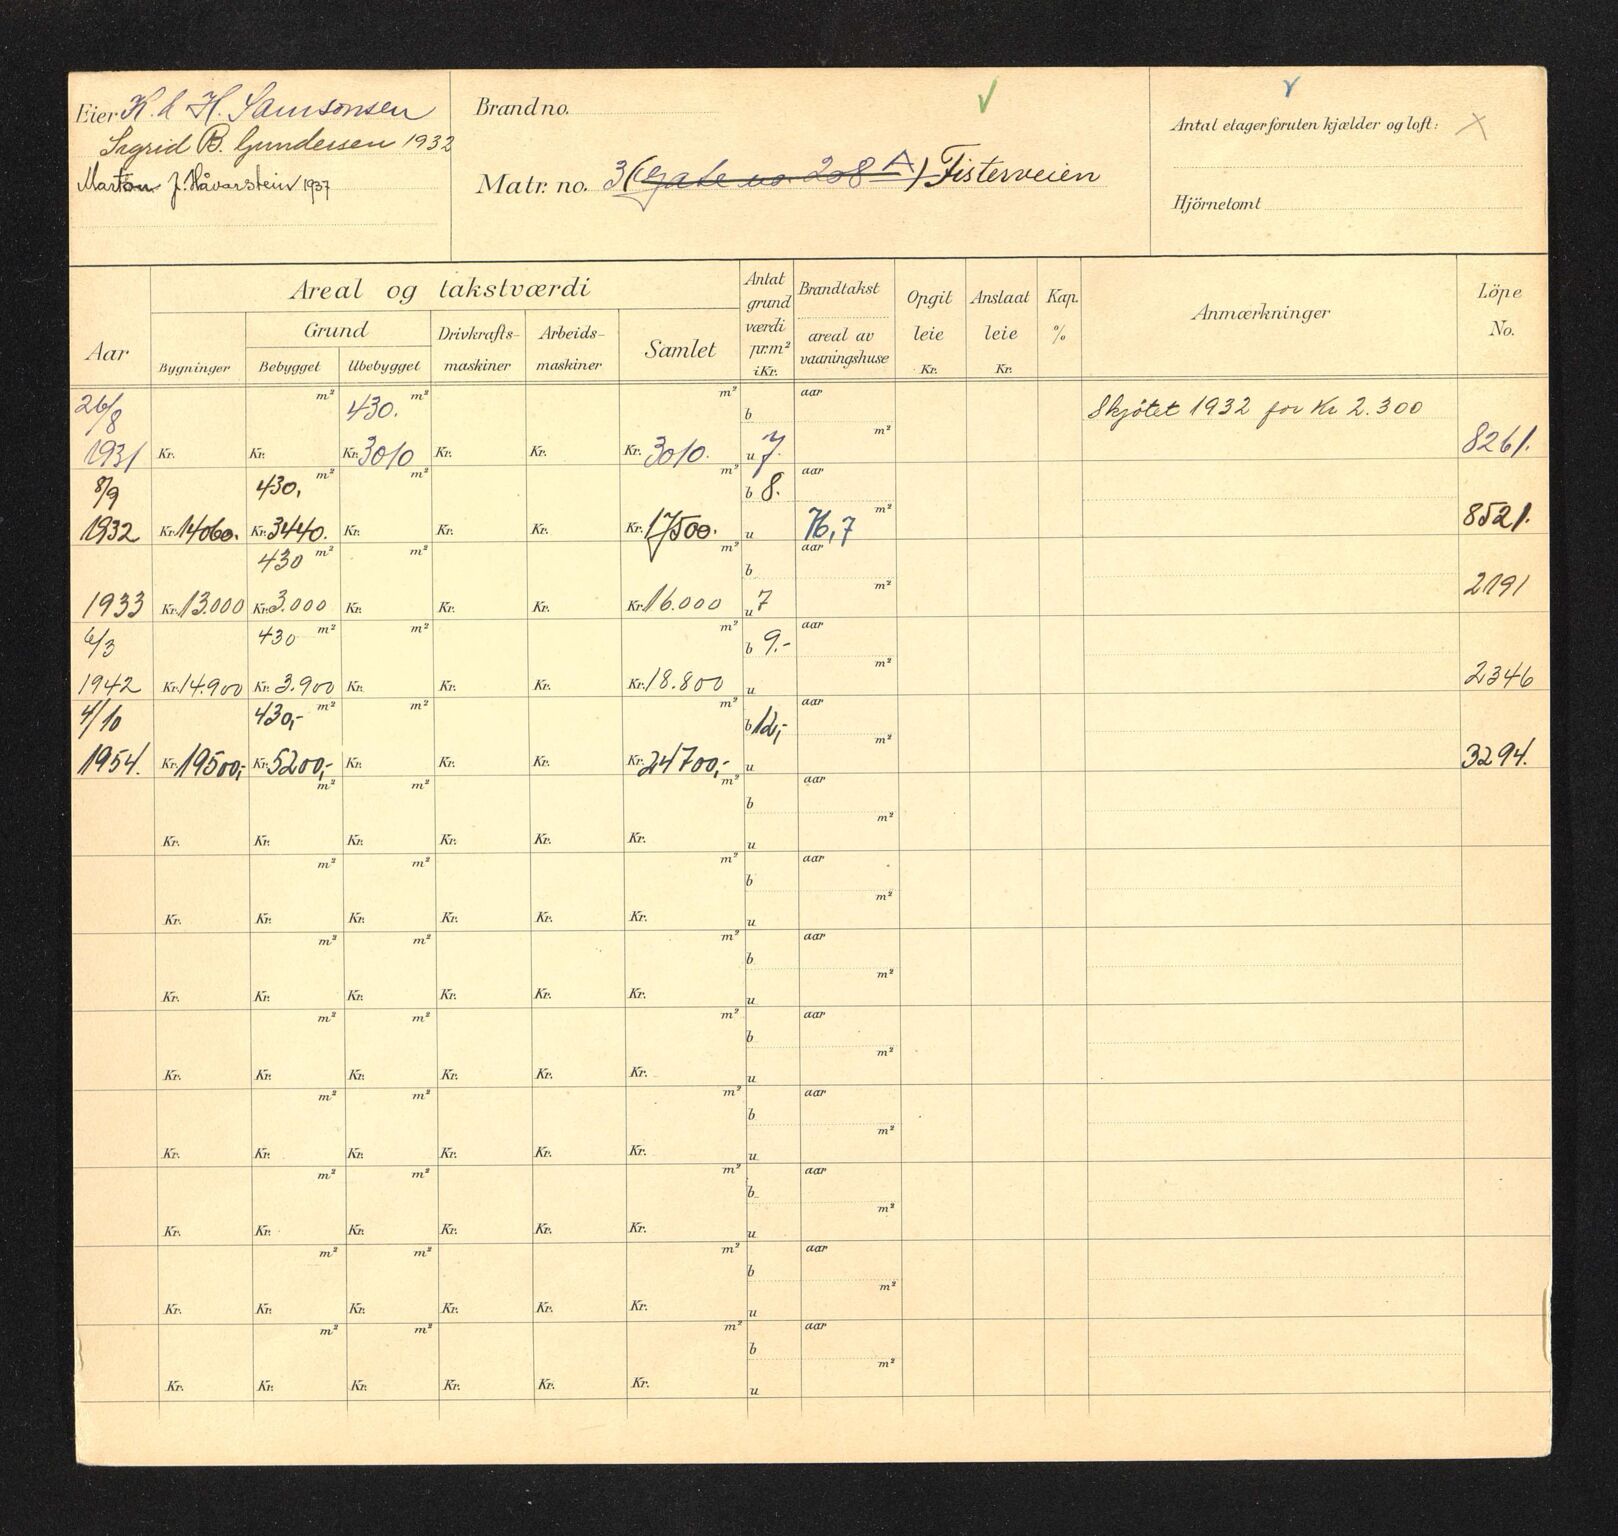 Eier K. & H. Samsonsen
Sigrid B. Gundersen 1932
J. Håvarstein 1937
Brand no.
Matr. no. 3 (Gate no. 208 A) Fisterveien
Antal etager foruten kjælder og loft: X
Hjörnetomt
Aar
Areal og takstværdi
Bygninger
Grund
Bebygget
Ubebygget
Drivkrafts-
maskiner
Arbeids-
maskiner
Samlet
Antat
grund
værdi
pr.m²
i Kr.
Brandtakst
areal av
vaaningshuse
Opgit
leie
Kr.
Anslaat
leie
Kr.
Kap.
%
Anmærkninger
Löpe
No.
26/8 m² 430. m² m² b aar Skjötet 1932 for Kr 2.300
1931 Kr. Kr. Kr. 3010 Kr. Kr. Kr. 3010. u 7. m² 8261.
8/9 430. m² m² m² b 8. aar
1932 Kr. 14060. Kr. 3440. Kr. Kr. Kr. Kr. 17500. u 76,7 m² 8521.
430 m² m² m² b aar
1933 Kr. 13.000 Kr. 3.000 Kr. Kr. Kr. Kr. 16.000 u 7 m² 2191
6/3 430 m² m² m² b 9.- aar
1942 Kr. 14.900 Kr. 3.900 Kr. Kr. Kr. Kr. 18.800 u m² 2346
4/10 430,- m² m² m² b 12,- aar
1954. Kr. 19500,- Kr. 5200,- Kr. Kr. Kr. Kr. 24700,- u m² 3294.
m² m² m² b aar
Kr. Kr. Kr. Kr. Kr. Kr. u m²
m² m² m² b aar
Kr. Kr. Kr. Kr. Kr. Kr. u m²
m² m² m² b aar
Kr. Kr. Kr. Kr. Kr. Kr. u m²
m² m² m² b aar
Kr. Kr. Kr. Kr. Kr. Kr. u m²
m² m² m² b aar
Kr. Kr. Kr. Kr. Kr. Kr. u m²
m² m² m² b aar
Kr. Kr. Kr. Kr. Kr. Kr. u m²
m² m² m² b aar
Kr. Kr. Kr. Kr. Kr. Kr. u m²
m² m² m² b aar
Kr. Kr. Kr. Kr. Kr. Kr. u m²